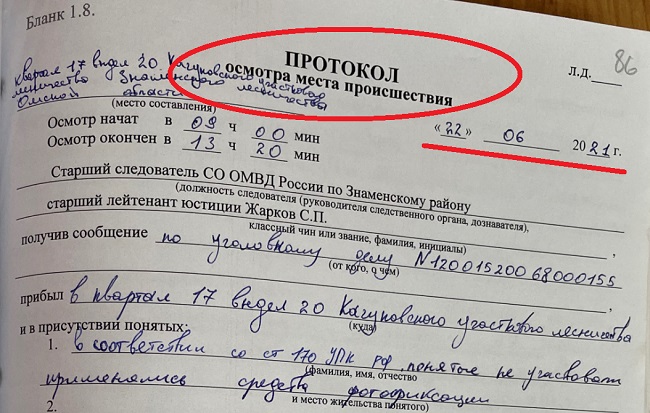 Бланк 1.8.
ПРОТОКОЛ
осмотра места происшествия
Л.Д. 86
квартал 17 выдел 20 Качуковского участкового
лесничества Знаменского лесничества
Омской области
(место составления)
« 22 » 06 20 21 г.
Осмотр начат в 09 ч 00 мин
Осмотр окончен в 13 ч 20 мин
Старший следователь СО ОМВД России по Знаменскому району
(должность следователя (руководителя следственного органа, дознавателя),
старший лейтенант юстиции Жарков С.П.
классный чин или звание, фамилия, инициалы)
получив сообщение по уголовному делу N12001520068000155
(от кого, о чем)
прибыл в квартал 17 выдел 20 Качуковского участкового лесничества
(куда)
и в присутствии понятых:
1. в соответствии со ст 170 УПК РФ понятые не участвовали
(фамилия, имя, отчество
применялись средства фотофиксации
и место жительства понятого)
2.